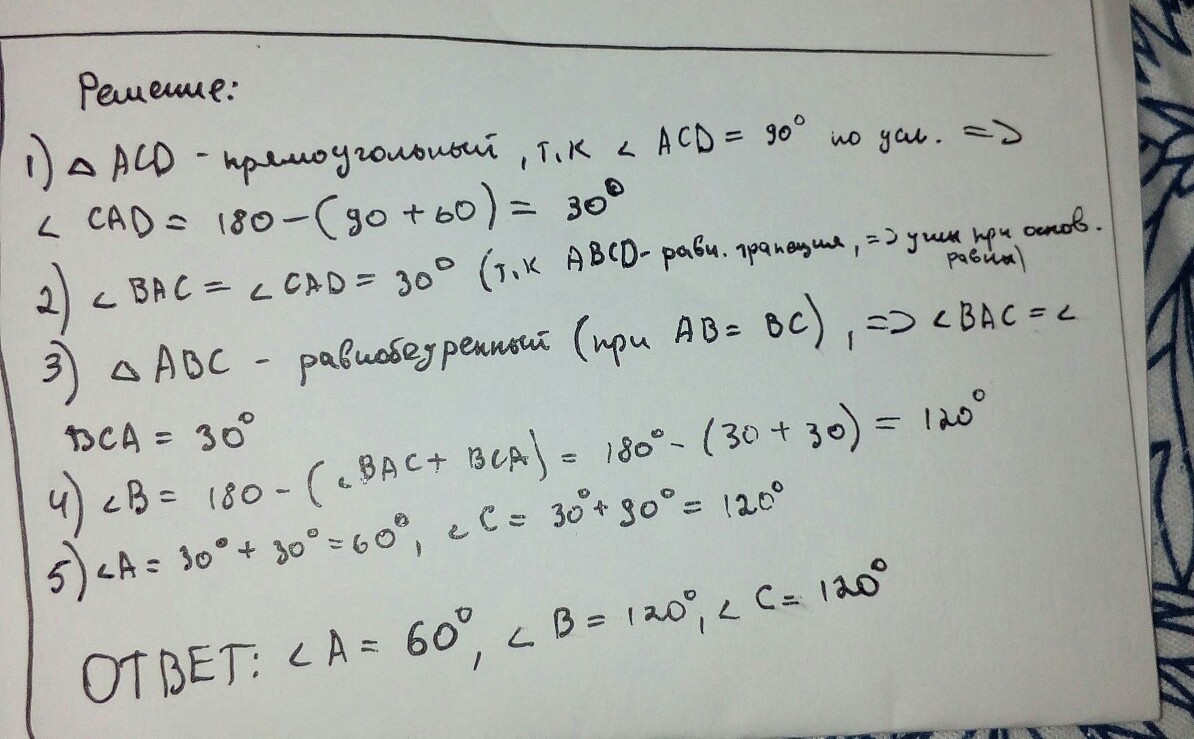 Решение:
1) △ ACD - прямоугольный, т.к ∠ ACD = 90° по усл. =>
∠ CAD = 180-(90+60) = 30°
2) ∠ BAC = ∠ CAD = 30° (т.к ABCD- равн. трапеция, => углы при основ. равны)
3) △ ABC - равнобедренный (при AB = BC), => ∠BAC = ∠
BCA = 30°
4) ∠B = 180 - (∠BAC + BCA) = 180° - (30 + 30) = 120°
5) ∠A = 30° + 30° = 60°, ∠C = 30° + 90° = 120°
ОТВЕТ: ∠A = 60°, ∠ B = 120°, ∠ C = 120°